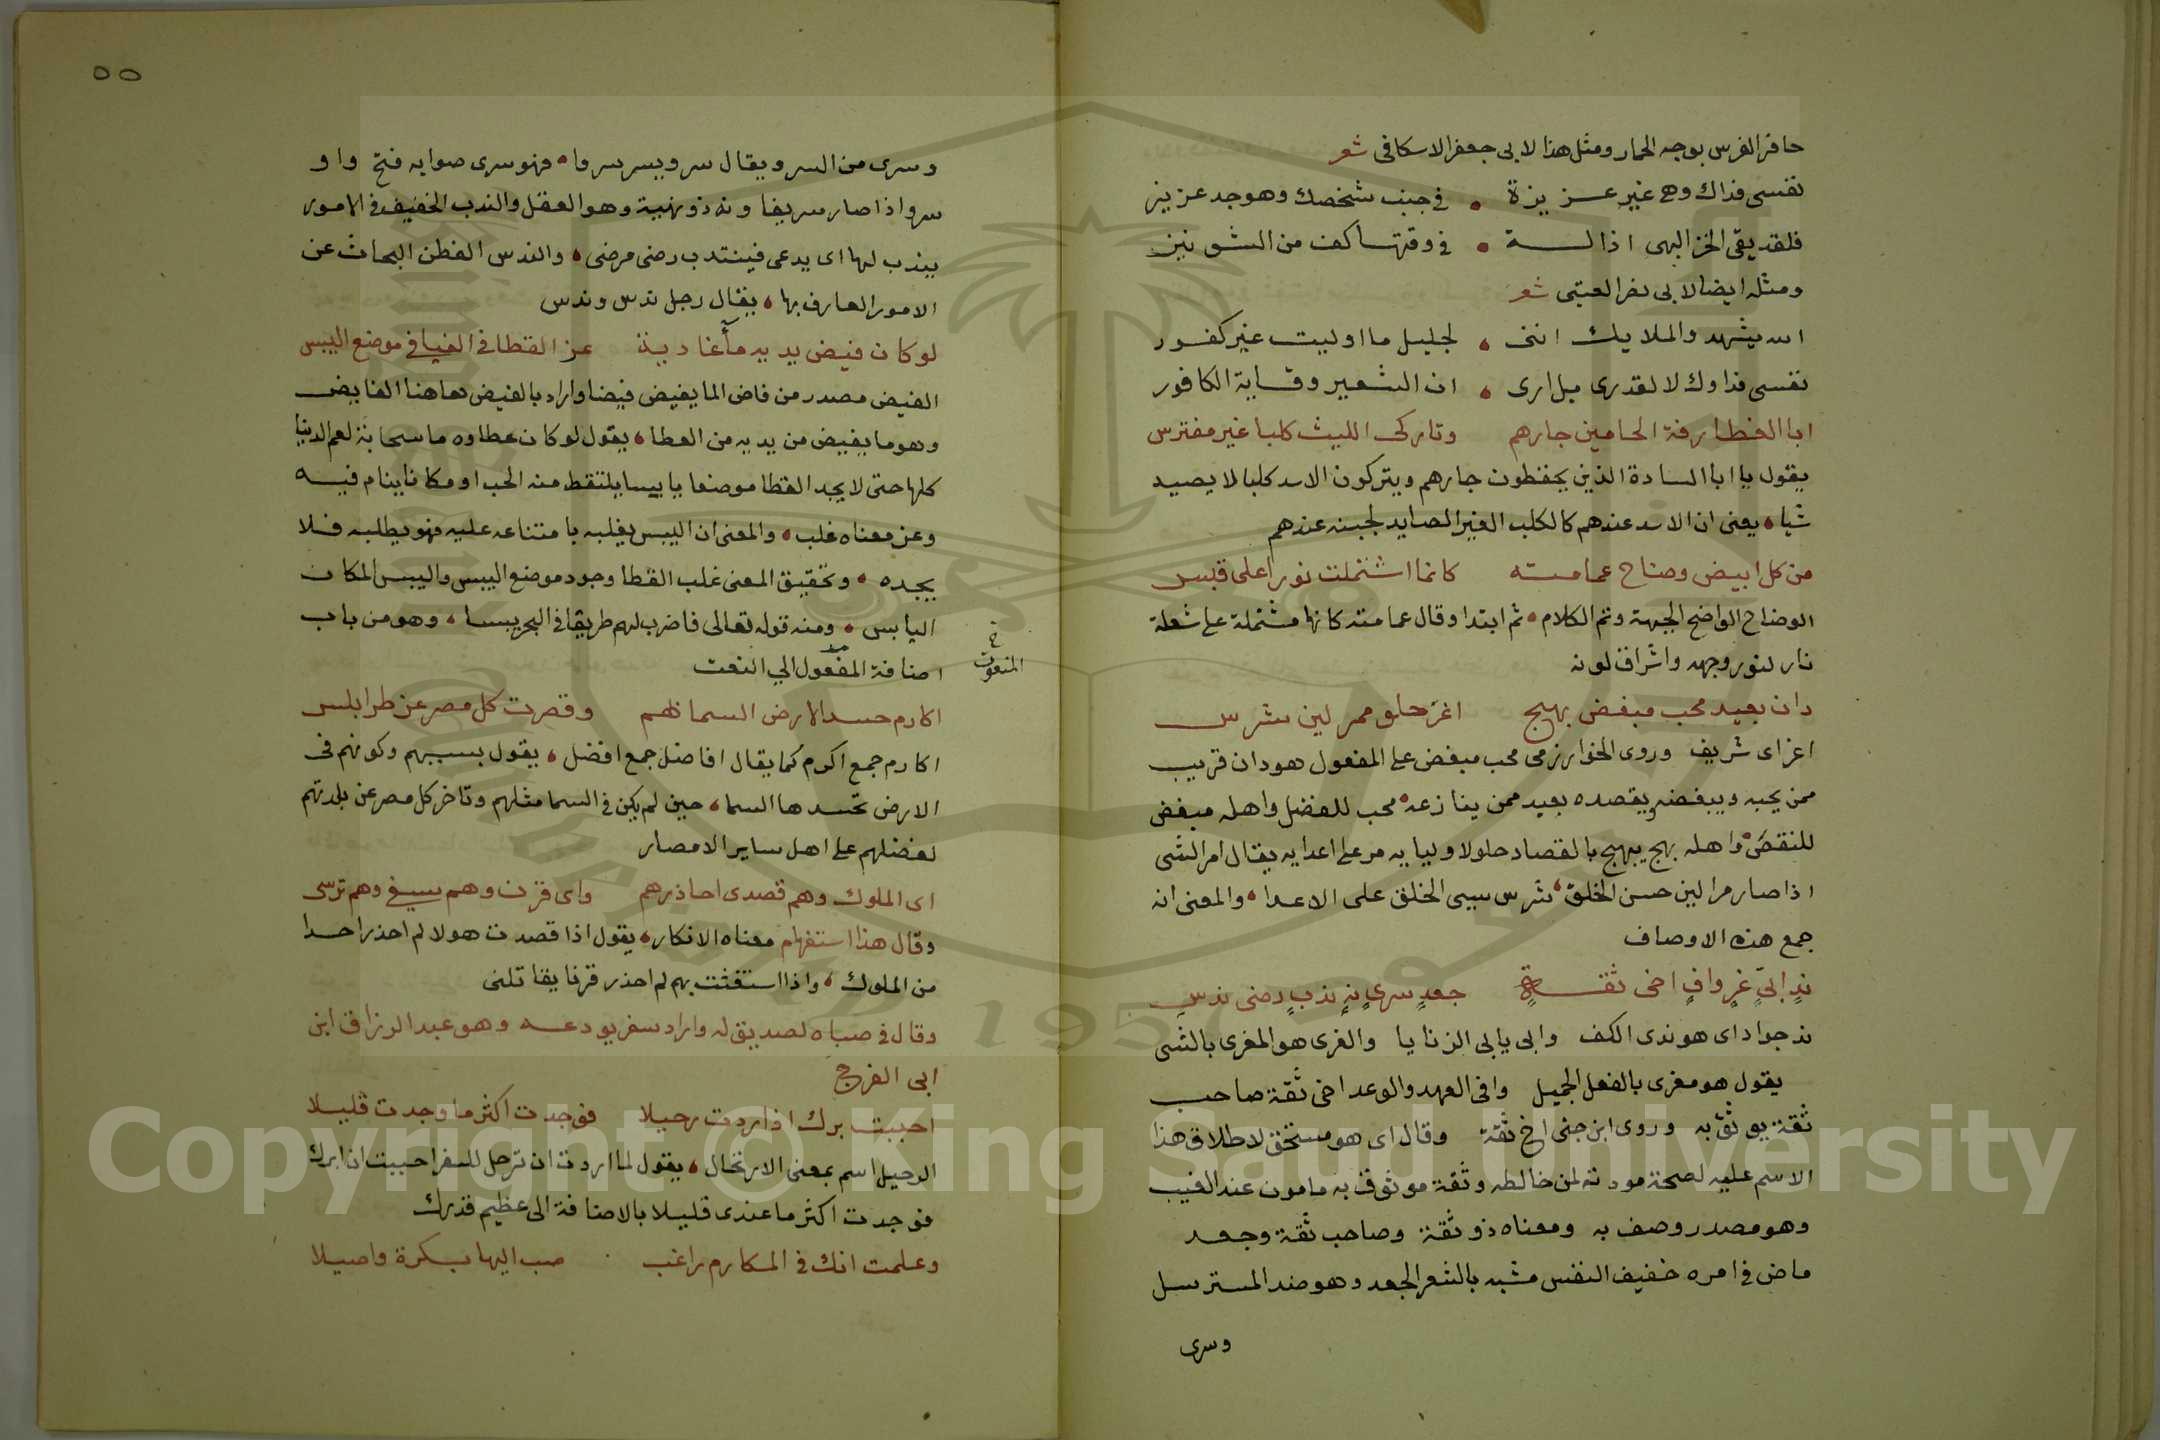 حافر الفرس بوجه الحمار ومثل هذا لابى جعفر الاسكافى شعر
نفسى فداك وهى غير عزيزة • فى جنب شخصك وهو جد عزيز
فلقد يقى الخز البهى اذالــة • فى وقتها كف من الشونيز
ومثله ايضا لابى نصر العتبى شعر
الله يشهد والملايك اننى • لجليل ما اوليت غير كفور
نفسى فداوك لا لقدرى بل ارى • ان الشعير وقاية الكافور
ابا الغطارفة الحامين جارهم وتاركى الليث كلبا غير مفترس
يقول يا ابا السادة الذين يحفظون جارهم ويتركون الاسد كلبا لا يصيد
شيا • يعنى ان الاسد عندهم كالكلب الغير الصايد لجبنه عندهم
من كل ابيض وضاح عمامته كانما اشتملت نورا على قبس
الوضاح الواضح الجبهة وتم الكلام • ثم ابتدا وقال عمامته كانها مشتملة على شعلة
نار لنور وجهه واشراق لونه
دان بعيد محب مبغض بهج اغر حلو ممر لين شرس
اغر اى شريف وروى الخوارزمى محب مبغض على المفعول هو دان قريب
ممن يحبه ويبغضه ويقصده بعيد ممن ينازعه • محب للفضل واهله مبغض
للنقص واهله بهج يبهج بالقصاد حلو لاوليايه مر على اعدايه يقال امر الشى
اذا صار مرا لين حسن الخلق • شرس سيى الخلق على الاعدا • والمعنى انه
جمع هذه الاوصاف
ندٍ ابىٍّ غرٍ وافٍ اخى ثقــةٍ جعدٍ سرىٍ نهٍ ندبٍ رضى ندسِ
ند جواد اى هو ندى الكف وابى يابى الزنايا والغرى هو المغرى بالشى
يقول هو مغرى بالفعل الجميل وافى العهد والوعد اخى ثقة صاحب
ثقة يوثق به وروى ابن جنى اخ ثقة وقال اى هو مستحق لاطلاق هذا
الاسم عليه لصحة مودته لمن خالطه وثقة موثوق به مامون عند الغيب
وهو مصدر وصف به ومعناه ذو ثقة وصاحب ثقة وجعد
ماض فى امره خفيف النفس مشبه بالشعر الجعد وهو ضد المسترسل
وسرى
٥٥
وسرى من السرو يقال سرو يسر سروا • فهو سرى صوابه فتح واو
سرو اذا صار سريفا ونه ذو نهية وهو العقل والندب الخفيف فى الامور
يندب لها اى يدعى فينتدب رضى مرضى • والندس الفطن البحاث عن
الامور العارف بها • يقال رجل ندس وندس
لو كان فيض يديه مآ غادية عز القطا فى الفيافى موضع اليبس
الفيض مصدر من فاض الما يفيض فيضا واراد بالفيض هاهنا الفايض
وهو ما يفيض من يديه من العطا • يقول لو كان عطاوه ما سحابة لعم الدنيا
كلها حتى لا يجد القطا موضعا يابسا يلتقط منه الحب او مكانا ينام فيه
وعز معناه غلب • والمعنى ان اليبس يغلبه بامتناعه عليه فهو يطلبه فلا
يجده • وتحقيق المعنى غلب القطا وجود موضع اليبس واليبس المكان
اليابس • ومنه قوله تعالى فاضرب لهم طريقا فى البحر يبسا • وهو من باب
اضافة المفعول الي النعت
خ
المنعوت
اكارم حسد الارض السما بهم وقصرت كل مصر عن طرابلس
اكارم جمع اكرم كما يقال افاضل جمع افضل • يقول بسببهم وكونهم فى
الارض تحسدها السما • حين لم يكن فى السما مثلهم وتاخر كل مصر عن بلدتهم
لفضلهم على اهل ساير الامصار
اى الملوك وهم قصدى احاذرهم واى قرن وهم سيفى وهم ترسى
وقال هذا استفهام معناه الانكار • يقول اذا قصدت هولا لم احذر احدا
من الملوك • واذا استغثت بهم لم احذر قرنا يقاتلنى
وقال فى صباه لصديق له واراد سفر يودعه وهو عبد الرزاق ابن
ابى الفرج
احببت برك اذ اردت رحيلا فوجدت اكثر ما وجدت قليلا
الرحيل اسم بمعنى الارتحال • يقول لما اردت ان ترحل للسفر احببت ان ابرك
فوجدت اكثر ما عندى قليلا بالاضافة الى عظيم قدرك
وعلمت انك فى المكارم راغب صب اليها بكرة واصيلا
Copyright © King Saud University
1957